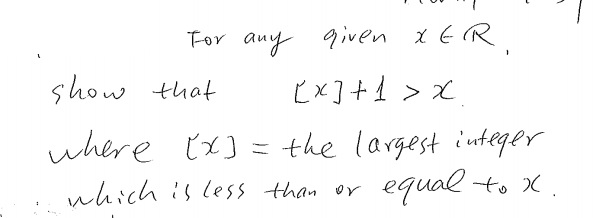 For any given x ∈ ℝ,
show that [x]+1 > x.
where [x] = the largest integer
which is less than or equal to x.